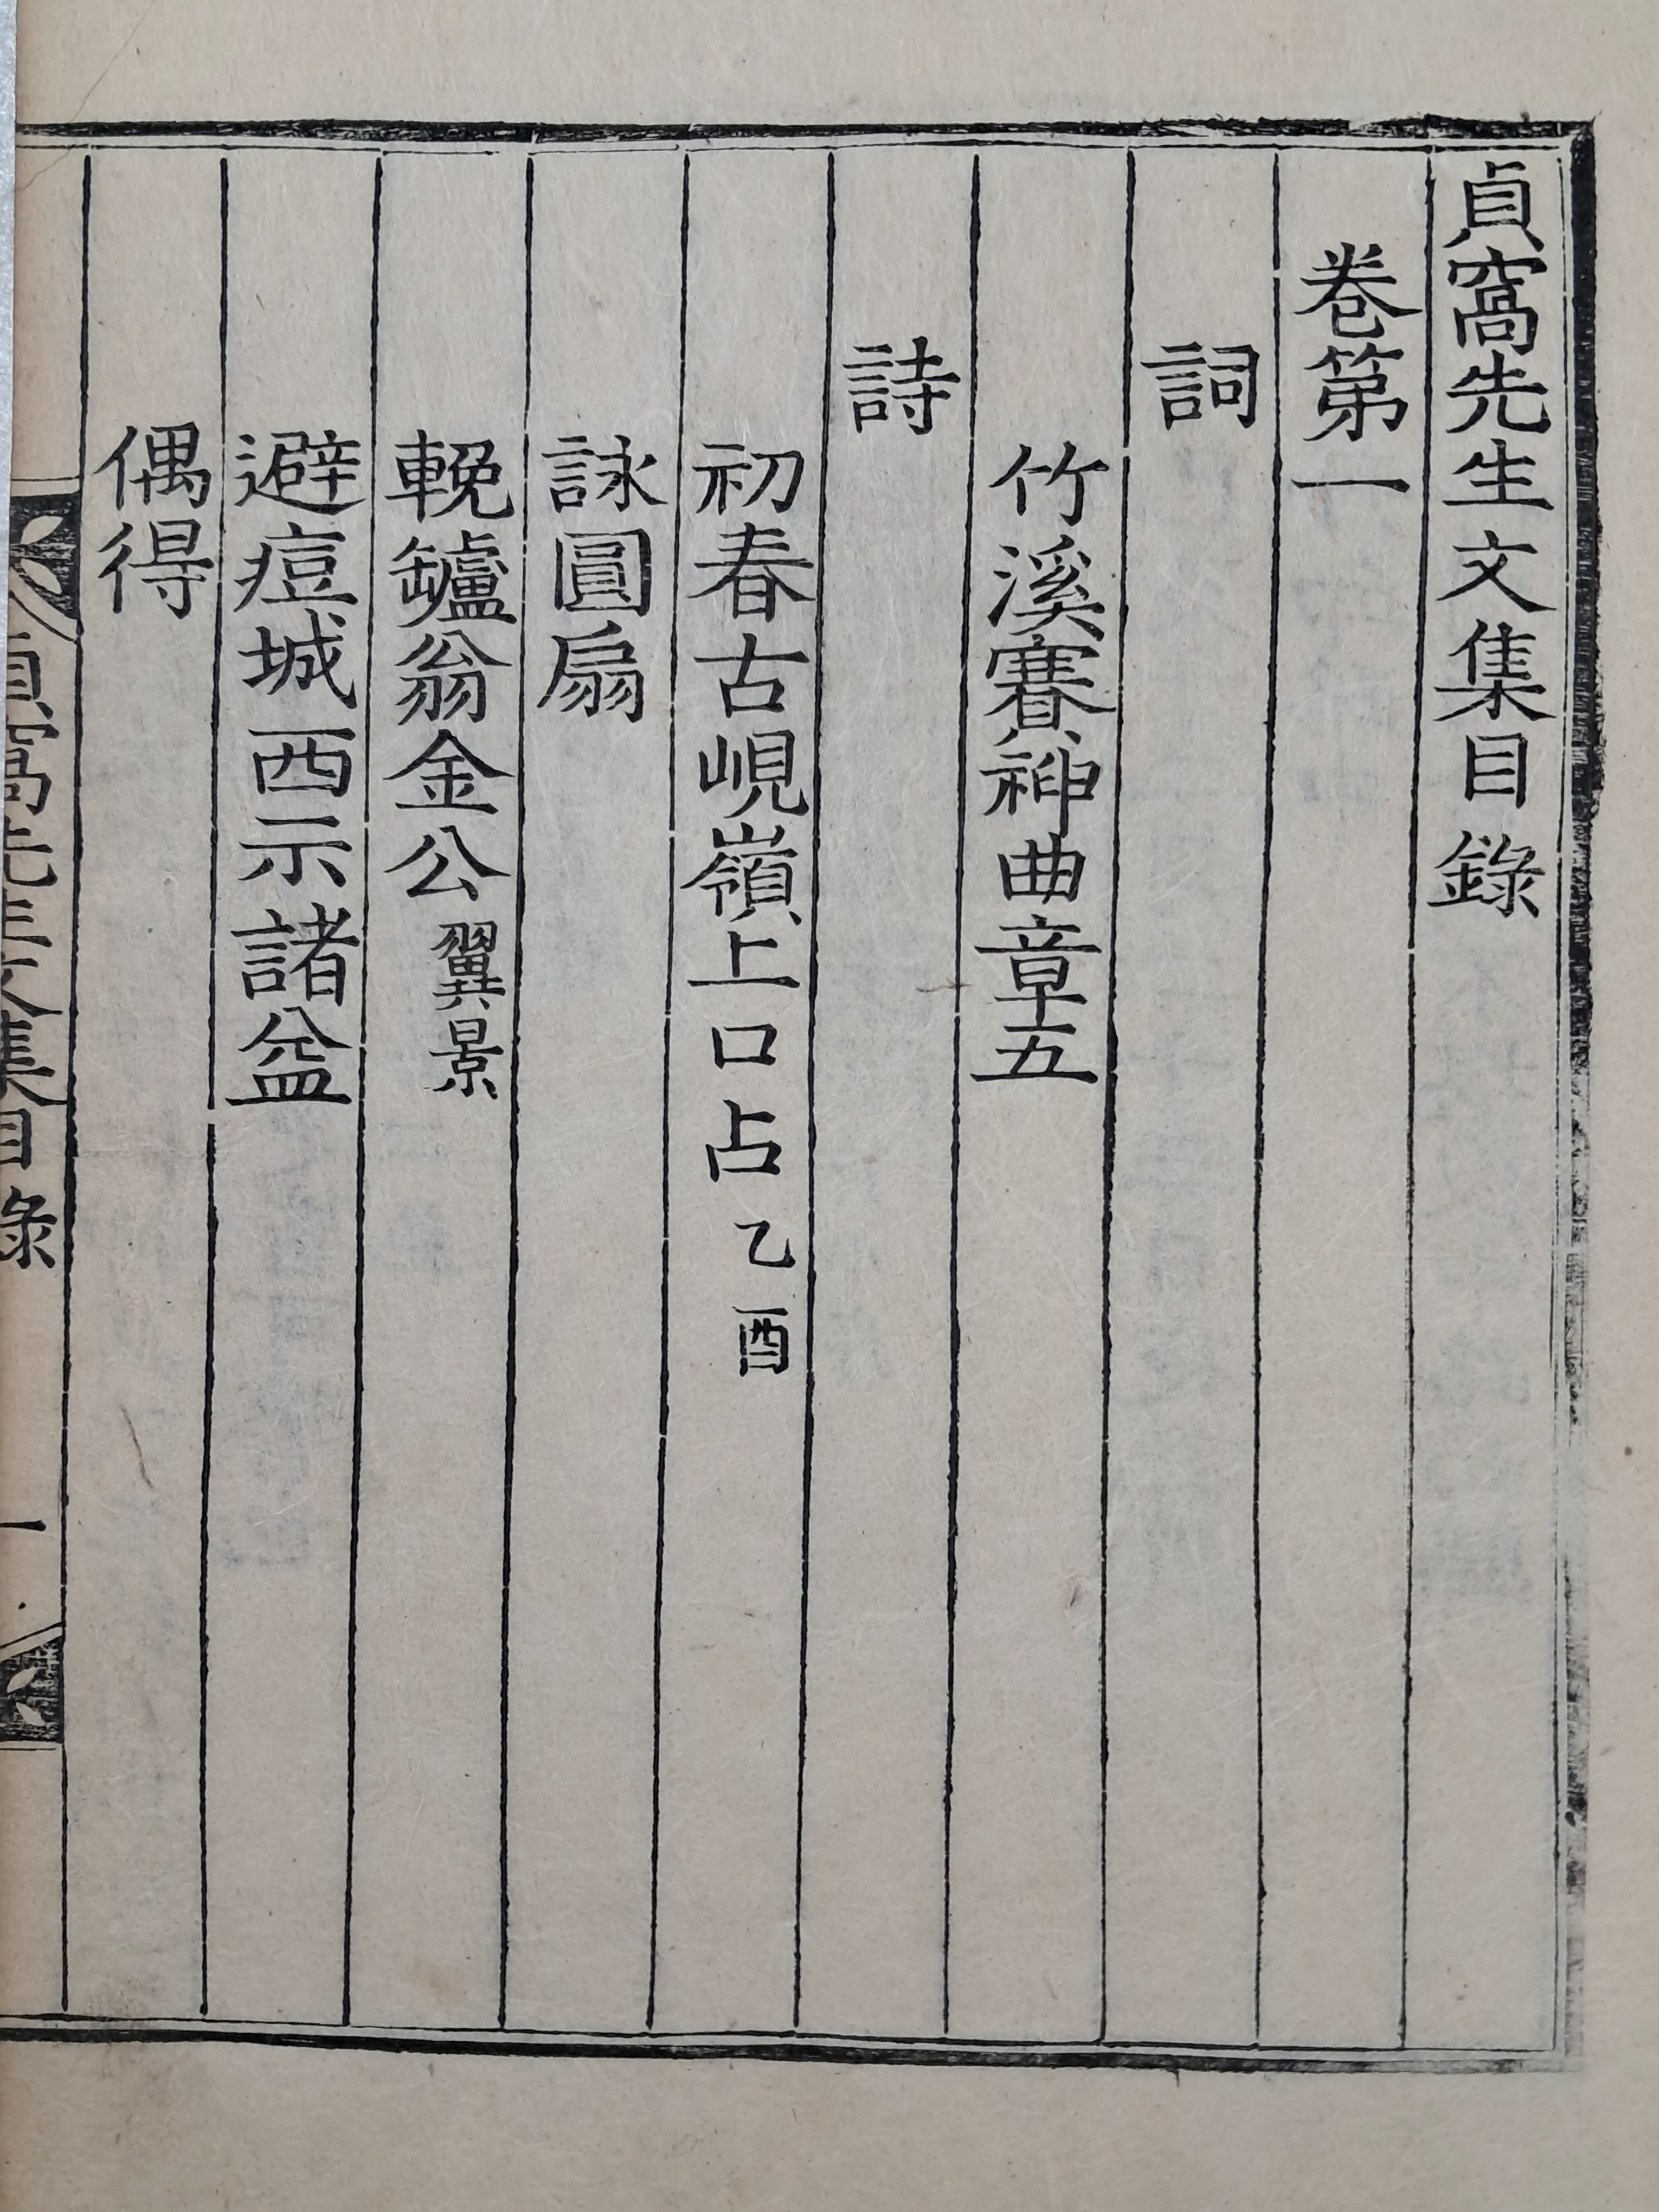 貞窩先生文集目錄
卷第一
詞
竹溪賽神曲章五
詩
初春古峴嶺上口占乙酉
詠圓扇
輓罏翁金公翼景
避痘城西示諸盆
偶得
貞窩先生文集目錄 一